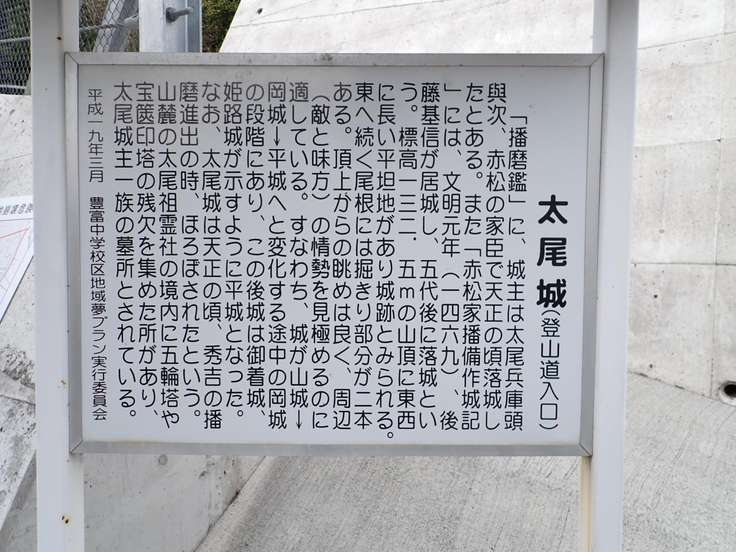 太尾城(登山道入口)
「播磨鑑」に、城主は太尾兵庫頭
與次、赤松の家臣で天正の頃落城し
たとある。また「赤松家播備作城記
」には、文明元年(一四六九)、後
藤基信が居城し、五代後に落城とい
う。標高一三二．五ｍの山頂に東西
に長い平坦地があり城跡とみられる。
東へ続く尾根には掘きり部分が二本
ある。頂上からの眺めは良く、周辺
(敵と味方)の情勢を見極めるのに
適している。すなわち、城が山城→
岡城→平城へと変化する途中の岡城
の段階にあり、この後城は御着城、
姫路城が示すように平城となった。
なお、太尾城は天正の頃、秀吉の播
磨進出の時、ほろぼされたという。
山麓の太尾祖霊社の境内に五輪塔や
宝篋印塔の残欠を集めた所があり、
太尾城主一族の墓所とされている。
平成一九年三月　豊富中学校区地域夢プラン実行委員会